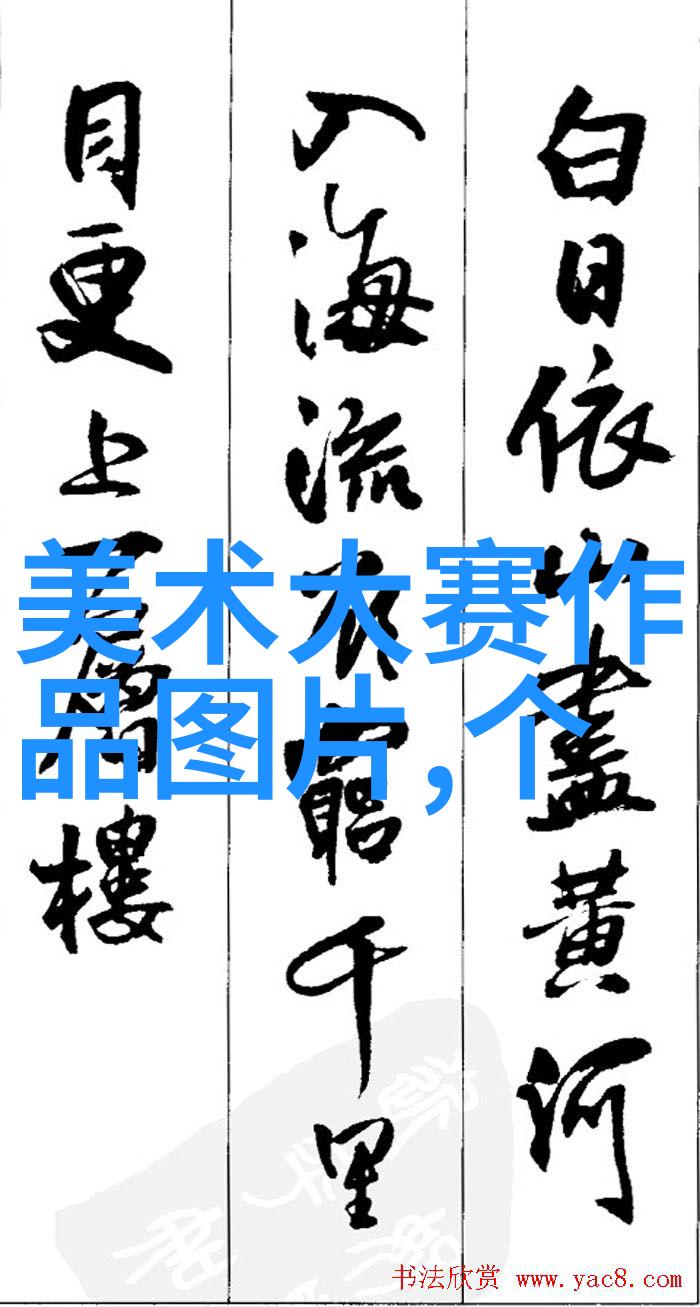 白日依山盡黄河
入海流欲窮千里
目更上一層樓
美术大赛作
品图片,个
书法欣赏 www.yac8.com